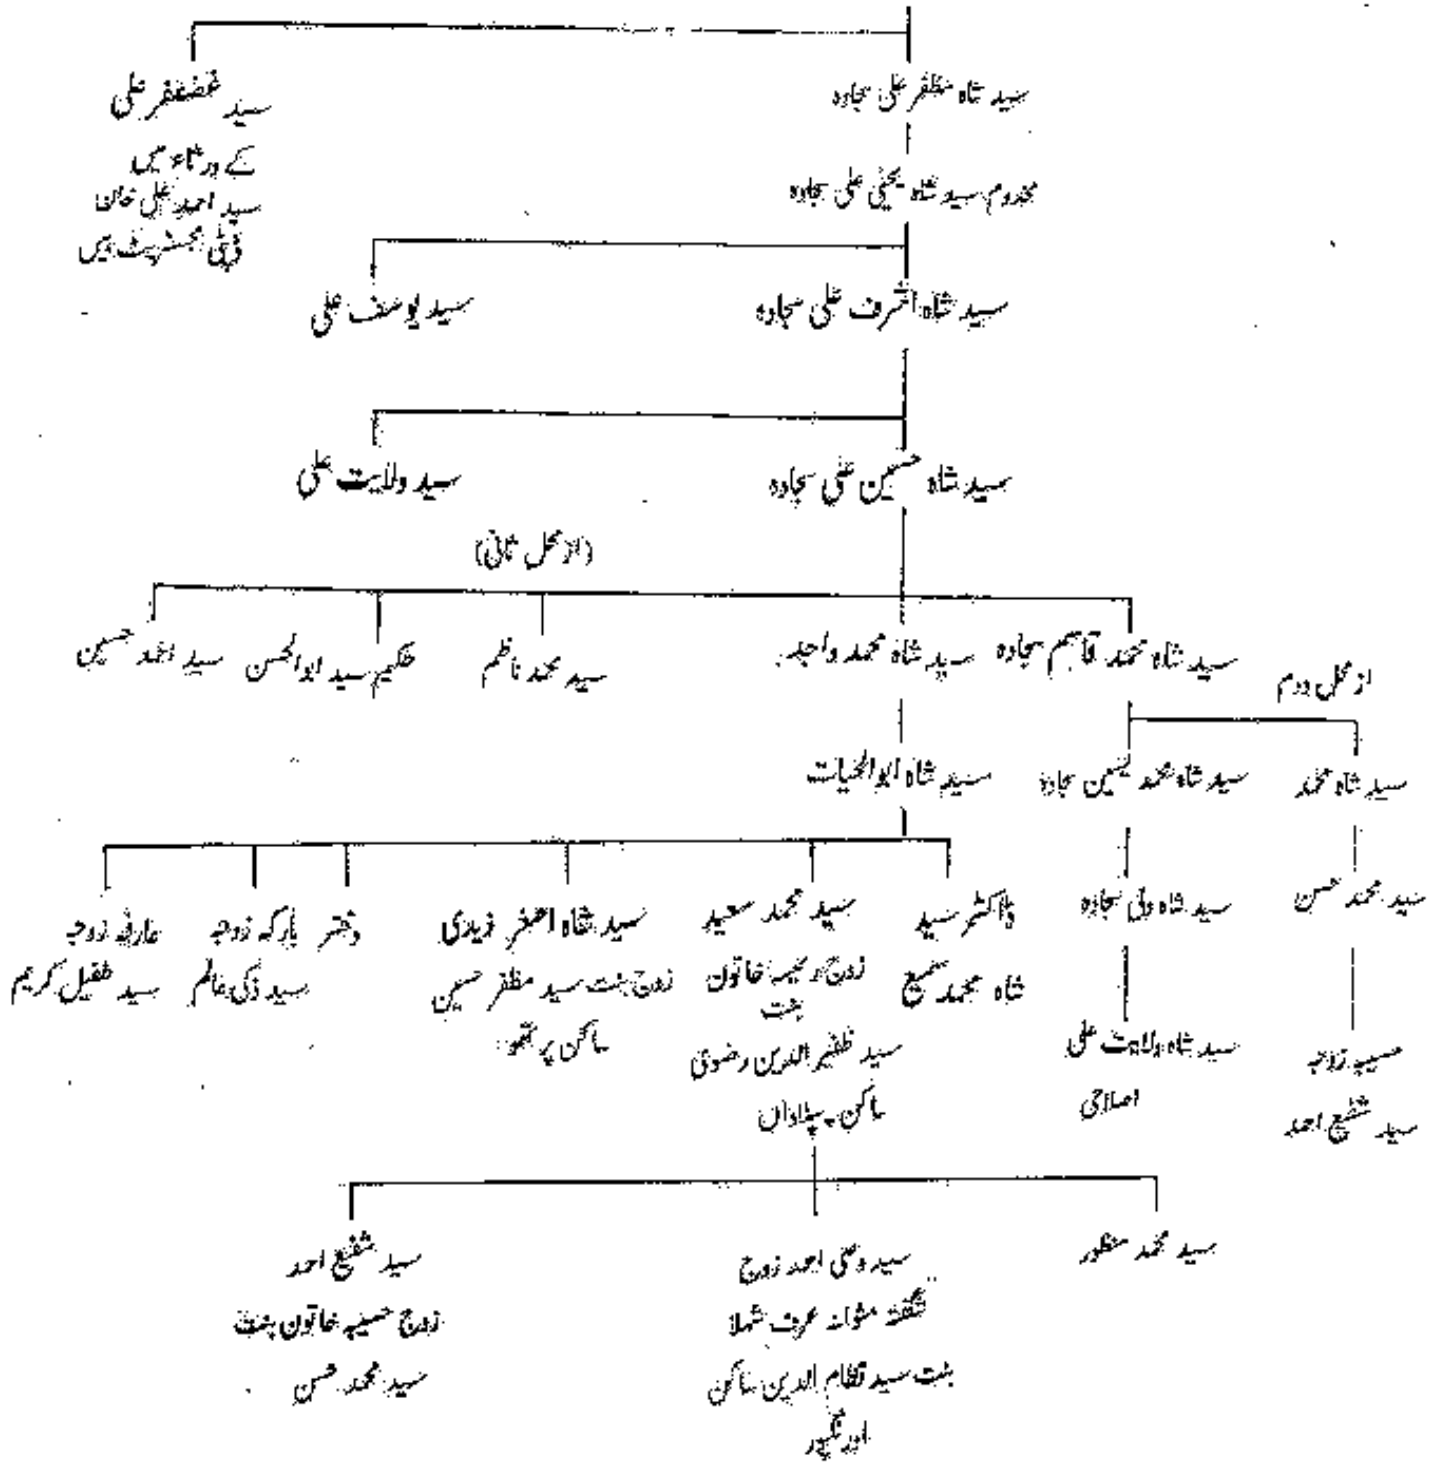 سید شاہ مظفر علی سجادہ
سید غضنفر علی
کے ورثاء میں
سید احمد علی خان
ڈپٹی مجسٹریٹ ہیں
مخدوم سید شاہ یحیٰی علی سجادہ
سید شاہ اشرف علی سجادہ
سید یوسف علی
سید شاہ حسین علی سجادہ
سید ولایت علی
(از محل ثانی)
سید شاہ محمد قاسم سجادہ
سید شاہ محمد واجد
سید محمد ناظم
حکیم سید ابوالحسن
سید احمد حسین
از محل دوم
سید شاہ محمد
سید شاہ محمد یٰسین سجادہ
سید شاہ ابوالحیات
سید محمد حسن
سید شاہ ولی سجادہ
ڈاکٹر سید
شاہ محمد سمیع
سید محمد سعید
زوج خاتون
بنت
سید ظفیر الدین رضوی
ساکن
سید شاہ اصغر زیدی
زوج بنت سید مظفر حسین
ساکن
دختر
بارکہ زوجہ
سید ذکی عالم
عارفہ زوجہ
سید طفیل کریم
حسیبہ زوجہ
سید شفیع احمد
سید شاہ ولایت علی
اصلاحی
سید محمد منظور
سید وصی احمد زوج
شگفتہ عرف شہلا
بنت سید نظام الدین ساکن
سید شفیع احمد
زوج حسیبہ خاتون بنت
سید محمد حسن